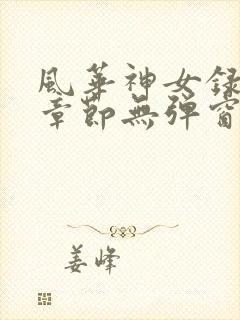 風華神女錄
章節無彈窗
姜峰